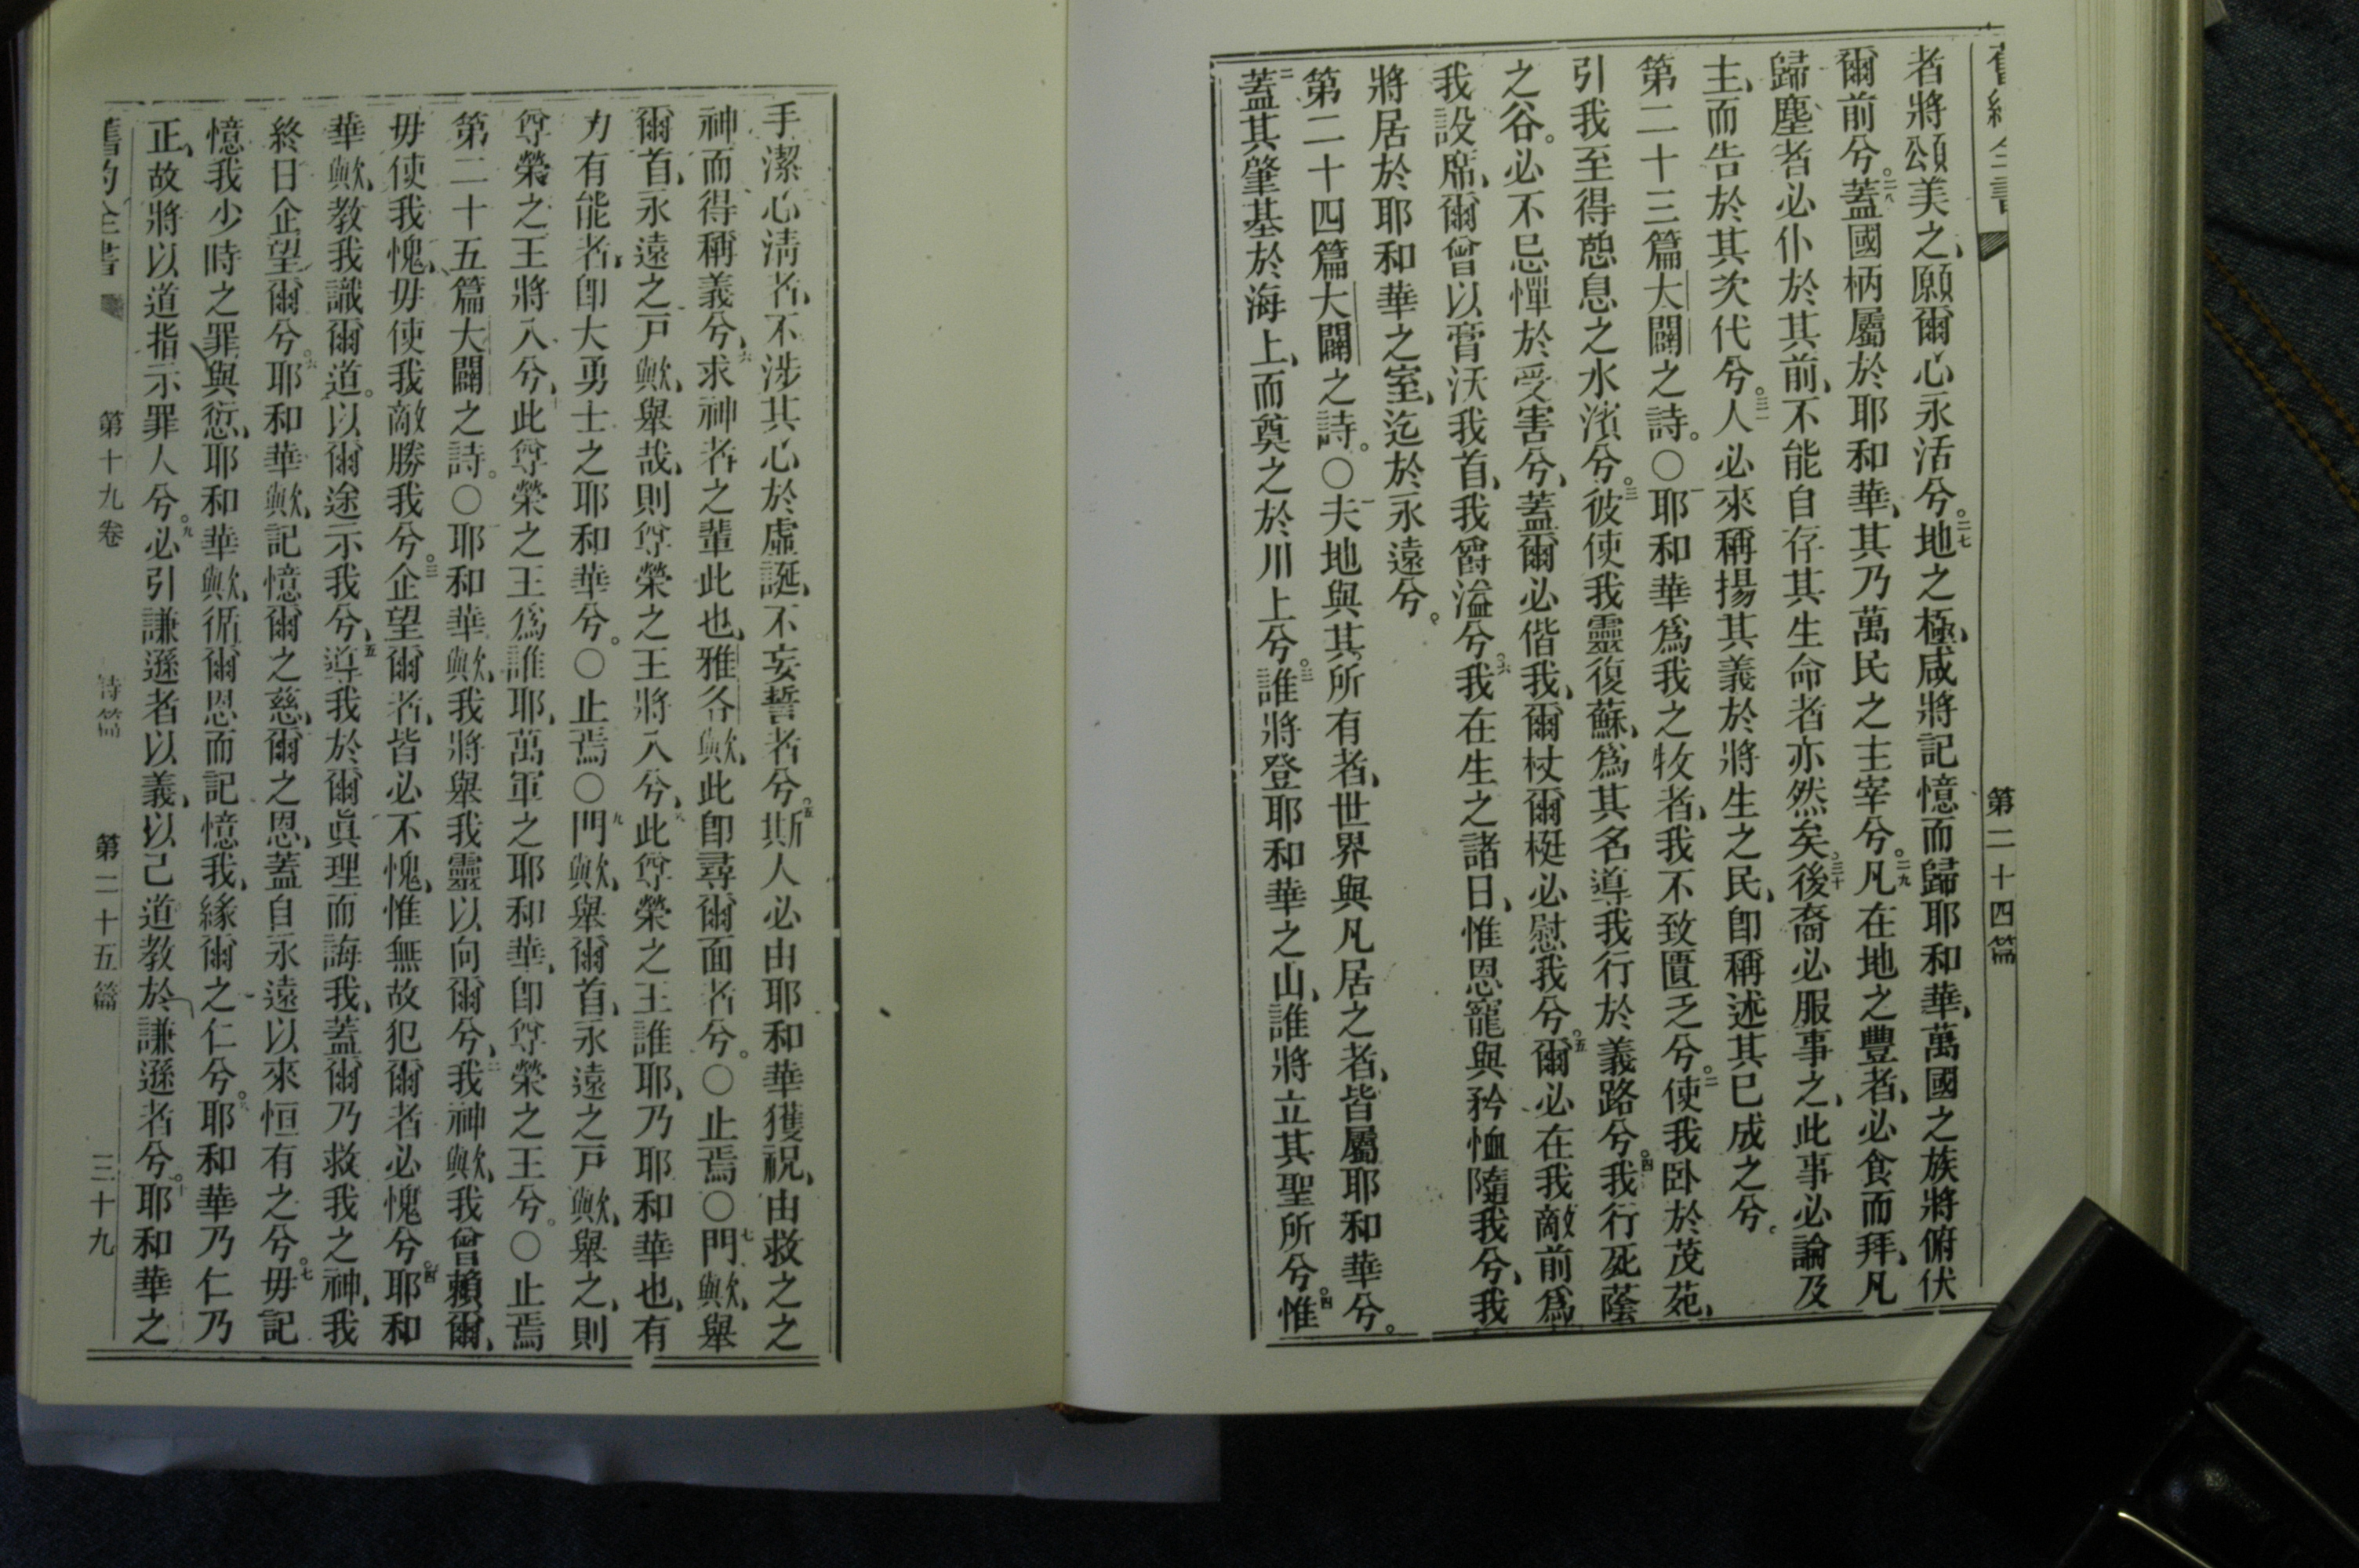 舊約全書
第二十四篇
者將頌美之、願爾心永活兮。二七地之極、咸將記憶而歸耶和華、萬國之族將俯伏
爾前兮。二八蓋國柄屬於耶和華、其乃萬民之主宰兮。二九凡在地之豐者、必食而拜、凡
歸塵者必仆於其前、不能自存其生命者亦然矣。三十後裔必服事之、此事必論及
主、而告於其次代兮。三一人必來稱揚其義於將生之民、卽稱述其已成之兮。
第二十三篇大闢之詩。〇一耶和華爲我之牧者、我不致匱乏兮。二使我卧於茂苑、
引我至得憩息之水濱兮。三彼使我靈復蘇、爲其名導我行於義路兮。四我行死蔭
之谷。必不忌憚於受害兮、蓋爾必偕我、爾杖爾梃必慰我兮。五爾必在我敵前爲
我設席、爾曾以膏沃我首、我爵溢兮。六我在生之諸日、惟恩寵與矜恤隨我兮、我
將居於耶和華之室、迄於永遠兮。
第二十四篇大闢之詩。〇一夫地與其所有者、世界與凡居之者、皆屬耶和華兮。
二蓋其肇基於海上、而奠之於川上兮。三誰將登耶和華之山、誰將立其聖所兮。四惟
手潔心淸者、不涉其心於虛誕、不妄誓者兮。五斯人必由耶和華獲祝、由救之之
神而得稱義兮、六求神者之輩此也、雅各歟、此卽尋爾面者兮。〇止焉〇七門歟、舉
爾首、永遠之戸歟、舉哉、則尊榮之王將入兮、八此尊榮之王誰耶、乃耶和華也、有
力有能者、卽大勇士之耶和華兮。〇止焉〇九門歟、舉爾首、永遠之戸歟、舉之、則
尊榮之王將入兮、十此尊榮之王爲誰耶、萬軍之耶和華、卽尊榮之王兮。〇止焉
第二十五篇大闢之詩。〇一耶和華歟、我將舉我靈以向爾兮、二我神歟、我曾賴爾、
毋使我愧、毋使我敵勝我兮。三企望爾者、皆必不愧、惟無故犯爾者必愧兮。四耶和
華歟、教我識爾道。以爾途示我兮、五導我於爾眞理而誨我、蓋爾乃救我之神、我
終日企望爾兮。六耶和華歟、記憶爾之慈、爾之恩、蓋自永遠以來恒有之兮。七毋記
憶我少時之罪與愆、耶和華歟、循爾恩而記憶我、緣爾之仁兮。八耶和華乃仁乃
正、故將以道指示罪人兮。九必引謙遜者以義、以己道教於謙遜者兮。十耶和華之
舊約全書
第十九卷
詩篇
第二十五篇
三十九